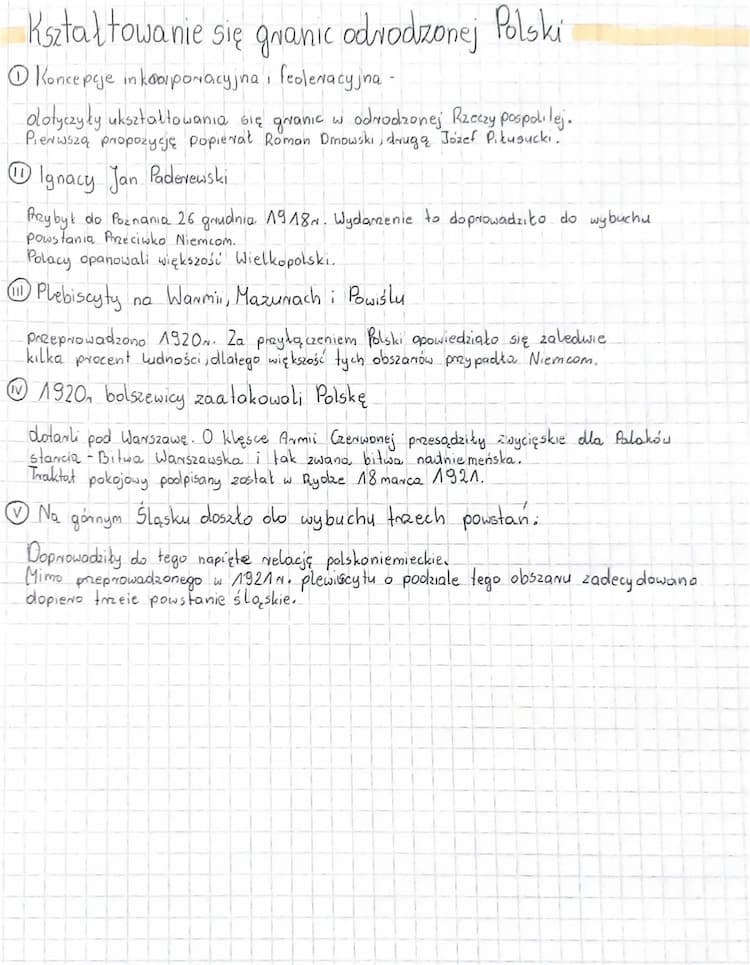 Kształtowanie się granic odrodzonej Polski
I Koncepcje inkorporacyjna i federacyjna -
dotyczyły ukształtowania się granic w odrodzonej Rzeczypospolitej.
Pierwszą propozycję popierał Roman Dmowski, drugą Józef Piłsudski.
II Ignacy Jan Paderewski
Przybył do Poznania 26 grudnia 1918r. Wydarzenie to doprowadziło do wybuchu
powstania Przeciwko Niemcom.
Polacy opanowali większość Wielkopolski.
III Plebiscyty na Warmii, Mazurach i Powiślu
przeprowadzono 1920r. Za przyłączeniem Polski opowiedziało się zaledwie
kilka procent ludności, dlatego większość tych obszarów przypadła Niemcom.
IV 1920r bolszewicy zaatakowali Polskę
dotarli pod Warszawę. O klęsce Armii Czerwonej przesądziły zwycięskie dla Polaków
starcia - Bitwa Warszawska i tak zwana bitwa nadniemeńska.
Traktat pokojowy podpisany został w Rydze 18 marca 1921.
V Na górnym Śląsku doszło do wybuchu trzech powstań:
Doprowadziły do tego napięte relację polskoniemieckie.
Mimo przeprowadzonego w 1921r. plewiscytu o podziale tego obszaru zadecydowano
dopiero trzeie powstanie śląskie.